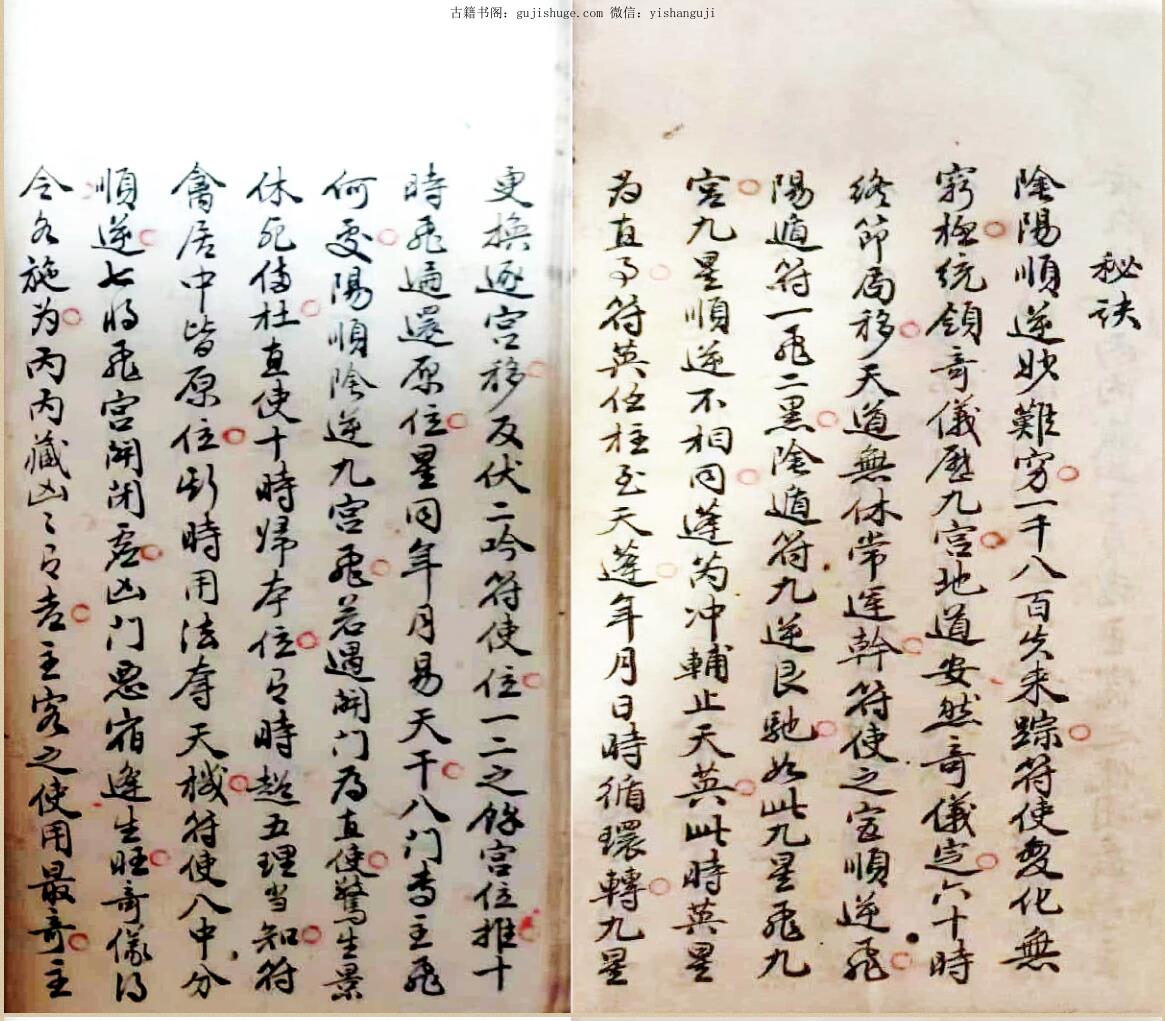 古籍书阁：gujishuge.com 微信：yishanguji
秘诀
陰陽順逆妙難穷一千八百尖来踪符使变化無
窮極统領奇儀歷九宫地道安然奇儀定六十時
终節局移天道無休常运幹符使之宫順逆飛
陽遁符一飛二黑陰遁符九逆艮馳如此九星飛九
宫九星順逆不相同蓬芮冲輔止天英此時英星
为直事符英任柱至天蓬年月日時循環轉九星
更换逐宫移反伏二吟符使位一二之餘宫位推十
時飛遍還原位星同年月易天干八门专主飛
何处陽順陰逆九宫飛若遇開门为直使驚生景
休死傷杜直使十時归本位有時超五理当知符
禽居中皆原位斯時用法奪天機符使八中分
順逆七将飛宫開闭虚凶门恶宿逢生旺奇儀得
令为施为丙丙藏凶〻有吉主客之使用最奇主